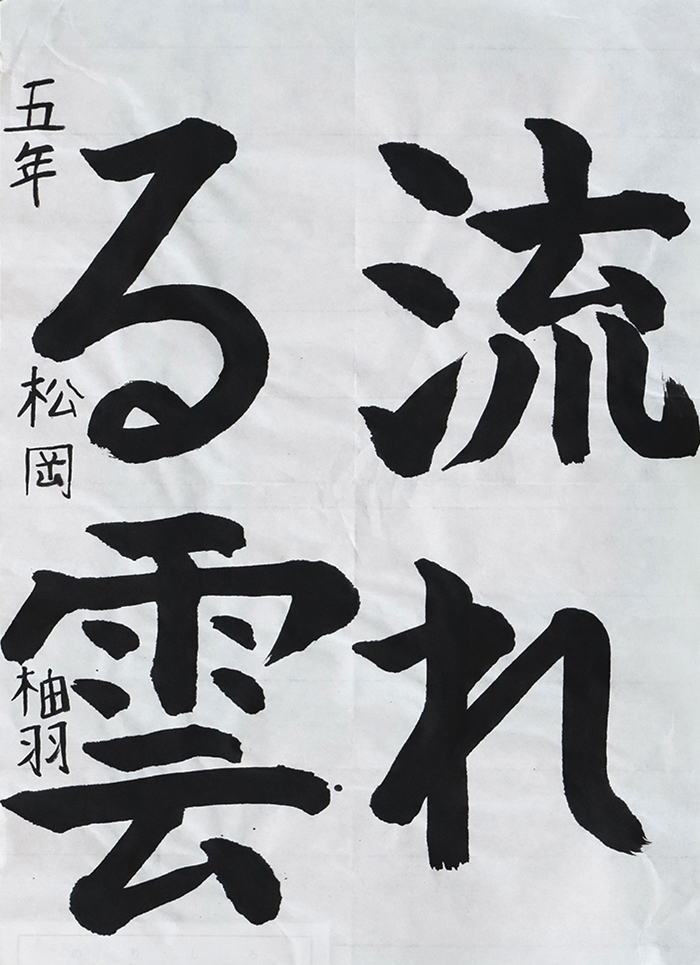 流れ
る雲
五年 松岡 柚羽